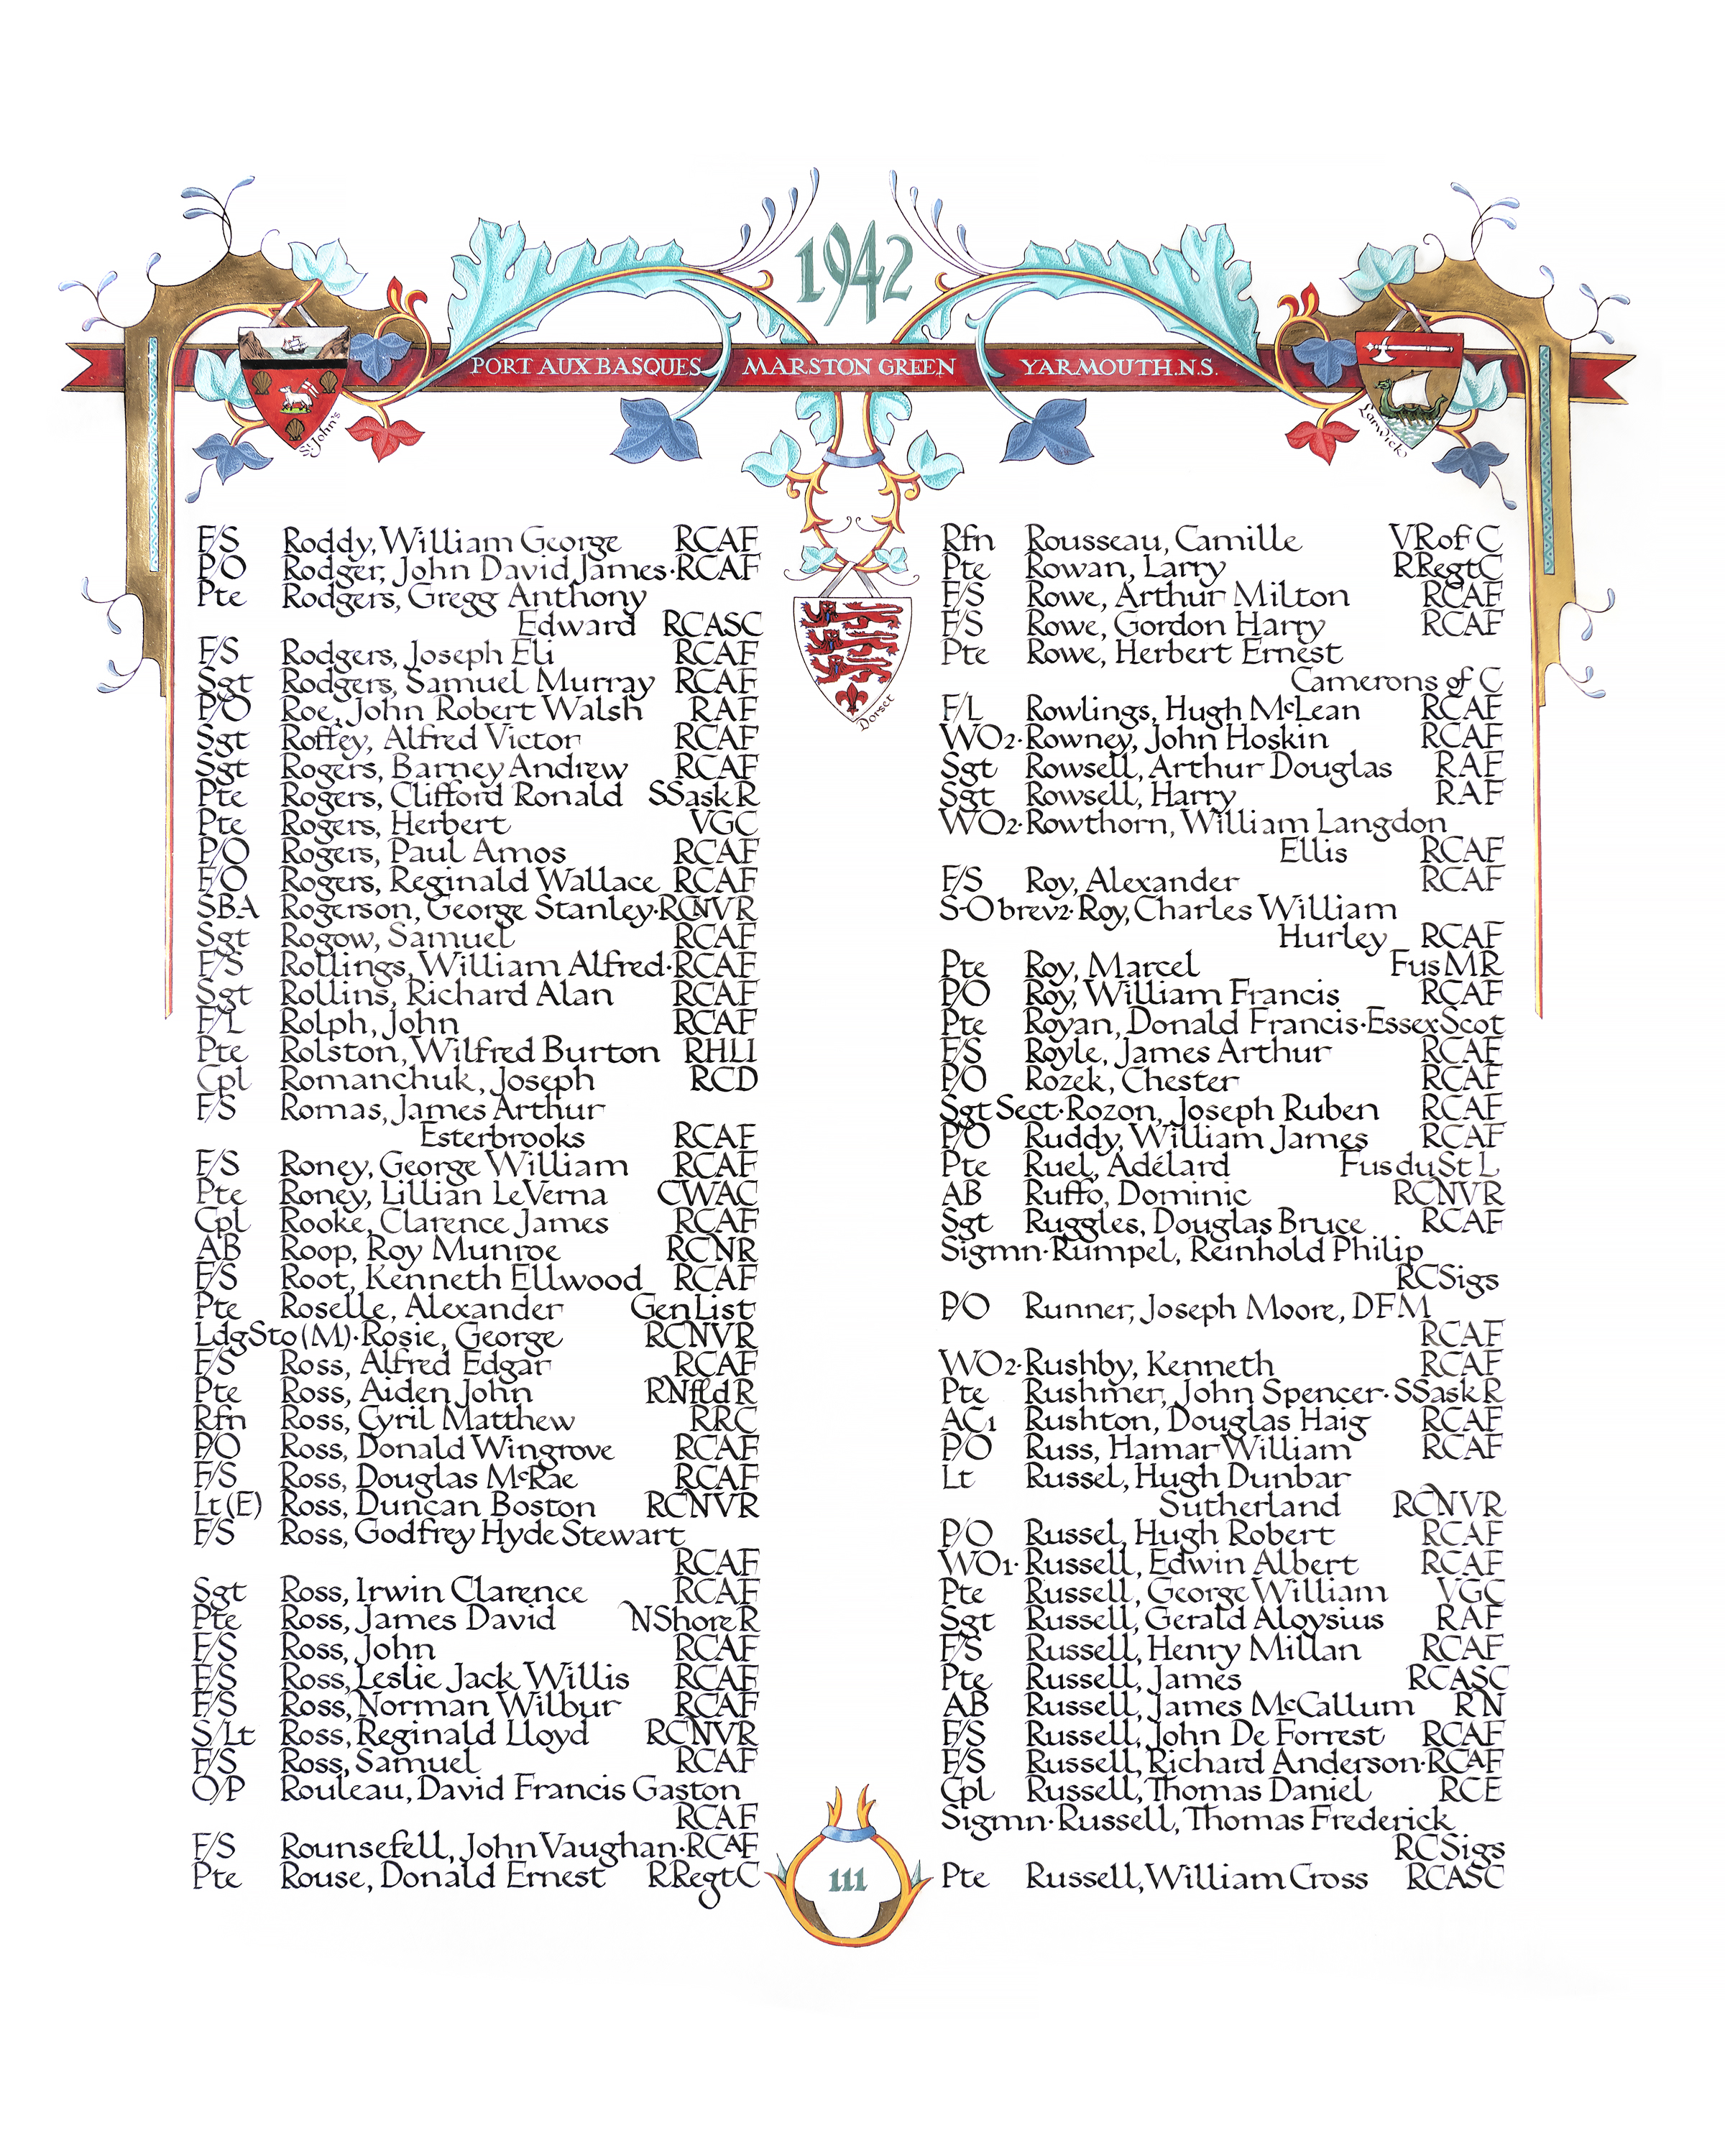 1942
PORT AUX BASQUES MARSTON GREEN YARMOUTH.N.S.
St. John's
Lerwick
Dorset
F/S Roddy, William George RCAF
P/O Rodger, John David James·RCAF
Pte Rodgers, Gregg Anthony
Edward RCASC
F/S Rodgers, Joseph Eli RCAF
Sgt Rodgers, Samuel Murray RCAF
P/O Roe, John Robert Walsh RAF
Sgt Roffey, Alfred Victor RCAF
Sgt Rogers, Barney Andrew RCAF
Pte Rogers, Clifford Ronald SSaskR
Pte Rogers, Herbert VGC
P/O Rogers, Paul Amos RCAF
F/O Rogers, Reginald Wallace RCAF
SBA Rogerson, George Stanley·RCNVR
Sgt Rogow, Samuel RCAF
F/S Rollings, William Alfred·RCAF
Sgt Rollins, Richard Alan RCAF
F/L Rolph, John RCAF
Pte Rolston, Wilfred Burton RHLI
Cpl Romanchuk, Joseph RCD
F/S Romas, James Arthur
Esterbrooks RCAF
F/S Roney, George William RCAF
Pte Roney, Lillian LeVerna CWAC
Cpl Rooke, Clarence James RCAF
AB Roop, Roy Munroe RCNR
F/S Root, Kenneth Ellwood RCAF
Pte Roselle, Alexander GenList
LdgSto(M)·Rosie, George RCNVR
F/S Ross, Alfred Edgar RCAF
Pte Ross, Aiden John RNfldR
Rfn Ross, Cyril Matthew RRC
P/O Ross, Donald Wingrove RCAF
F/S Ross, Douglas McRae RCAF
Lt(E) Ross, Duncan Boston RCNVR
F/S Ross, Godfrey Hyde Stewart
RCAF
Sgt Ross, Irwin Clarence RCAF
Pte Ross, James David NShoreR
F/S Ross, John RCAF
F/S Ross, Leslie Jack Willis RCAF
F/S Ross, Norman Wilbur RCAF
S/Lt Ross, Reginald Lloyd RCNVR
F/S Ross, Samuel RCAF
O/P Rouleau, David Francis Gaston
RCAF
F/S Rounsefell, John Vaughan·RCAF
Pte Rouse, Donald Ernest RRegtC
Rfn Rousseau, Camille VRofC
Pte Rowan, Larry RRegtC
F/S Rowe, Arthur Milton RCAF
F/S Rowe, Gordon Harry RCAF
Pte Rowe, Herbert Ernest
Camerons of C
F/L Rowlings, Hugh McLean RCAF
WO2·Rowney, John Hoskin RCAF
Sgt Rowsell, Arthur Douglas RAF
Sgt Rowsell, Harry RAF
WO2·Rowthorn, William Langdon
Ellis RCAF
F/S Roy, Alexander RCAF
S-Obrev2·Roy, Charles William
Hurley RCAF
Pte Roy, Marcel FusMR
P/O Roy, William Francis RCAF
Pte Royan, Donald Francis·EssexScot
F/S Royle, James Arthur RCAF
P/O Rozek, Chester RCAF
SgtSect·Rozon, Joseph Ruben RCAF
P/O Ruddy, William James RCAF
Pte Ruel, Adélard FusduStL
AB Ruffo, Dominic RCNVR
Sgt Ruggles, Douglas Bruce RCAF
Sigmn·Rumpel, Reinhold Philip
RCSigs
P/O Runner, Joseph Moore, DFM
RCAF
WO2·Rushby, Kenneth RCAF
Pte Rushmer, John Spencer·SSaskR
AC1 Rushton, Douglas Haig RCAF
P/O Russ, Hamar William RCAF
Lt Russel, Hugh Dunbar
Sutherland RCNVR
P/O Russel, Hugh Robert RCAF
WO1·Russell, Edwin Albert RCAF
Pte Russell, George William VGC
Sgt Russell, Gerald Aloysius RAF
F/S Russell, Henry Millan RCAF
Pte Russell, James RCASC
AB Russell, James McCallum RN
F/S Russell, John De Forrest RCAF
F/S Russell, Richard Anderson·RCAF
Cpl Russell, Thomas Daniel RCE
Sigmn·Russell, Thomas Frederick
RCSigs
Pte Russell, William Cross RCASC
111